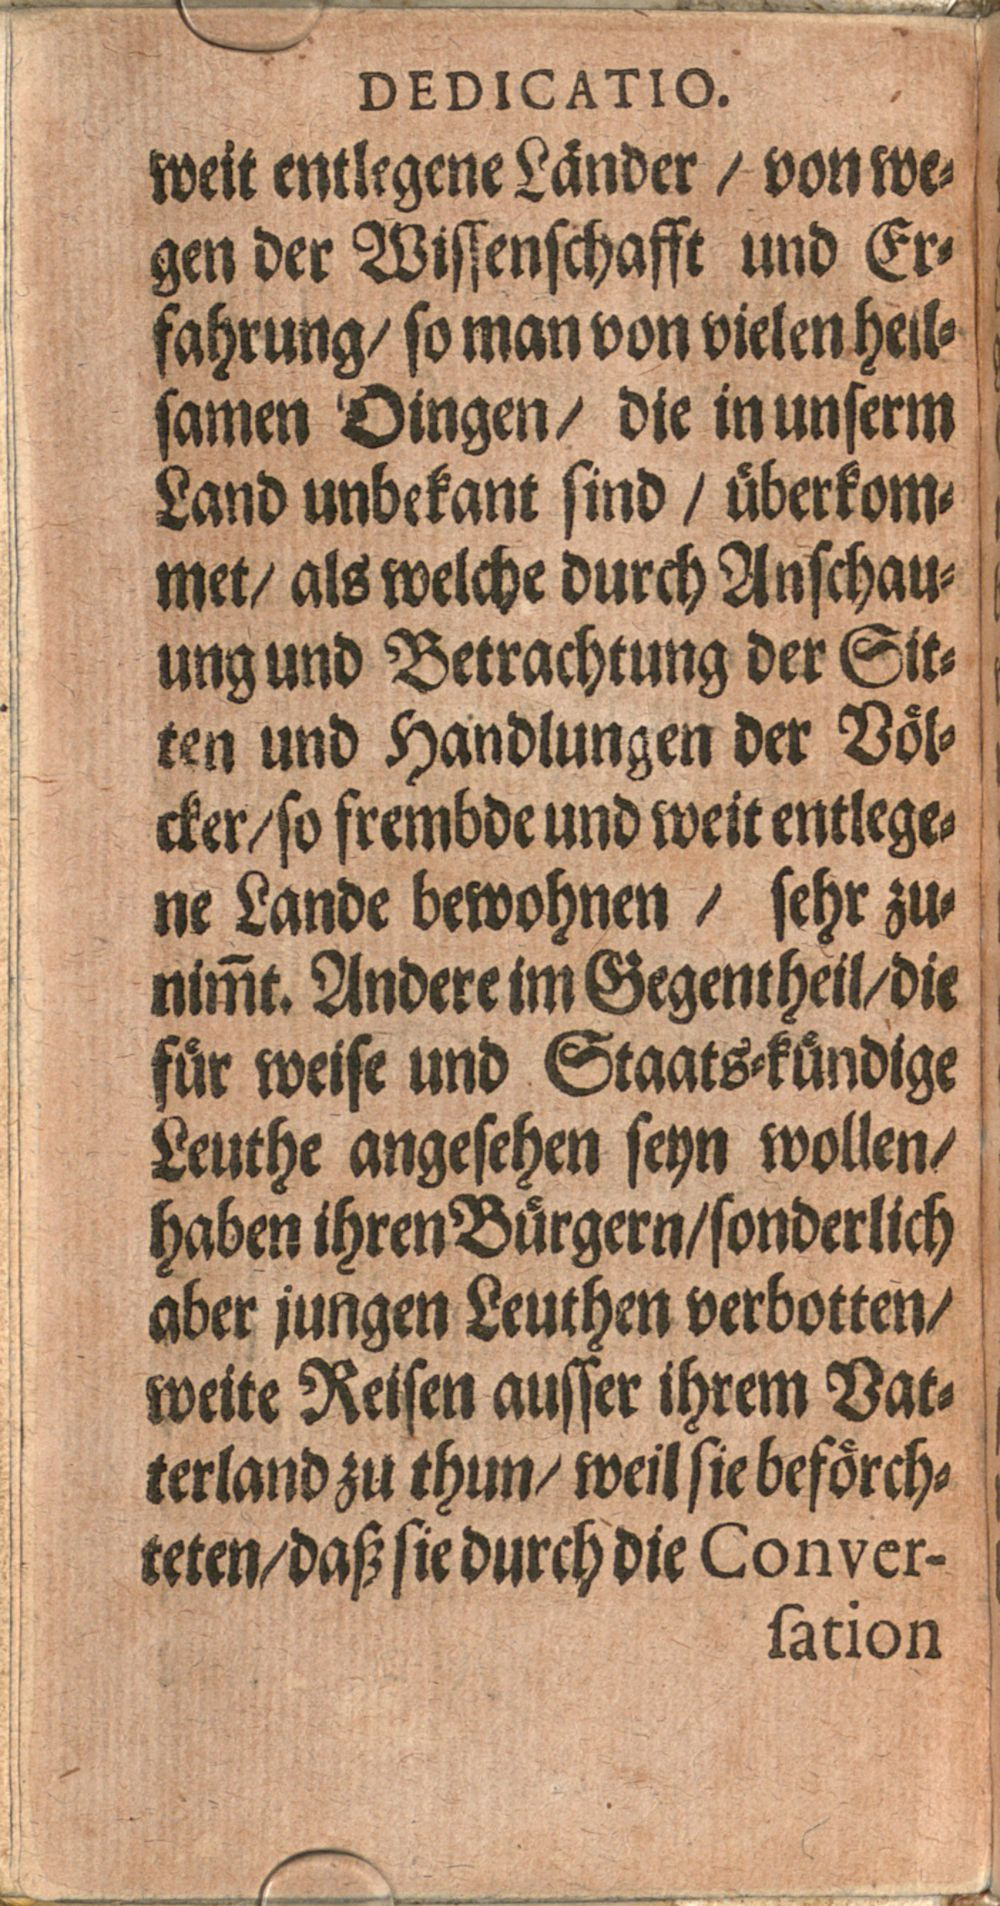 DEDICATIO.
weit entlegene Länder / von we-
gen der Wiſſenſchafft und Er-
fahrung/ ſo man von vielen heil-
ſamen Dingen/ die in unſerm
Land unbekant ſind / überkom-
met/ als welche durch Anſchau-
ung und Betrachtung der Sit-
ten und Handlungen der Völ-
cker/ſo frembde und weit entlege-
ne Lande bewohnen / ſehr zu-
nim̃t. Andere im Gegentheil/die
für weiſe und Staats-kündige
Leuthe angeſehen ſeyn wollen/
haben ihren Bürgern/ſonderlich
aber jungen Leuthen verbotten/
weite Reiſen auſſer ihrem Vat-
terland zu thun/ weil ſie beförch-
teten/daß ſie durch die Conver-
ſation